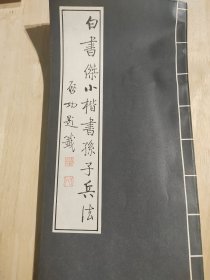 白書傑小楷書孫子兵法
啓功題籤